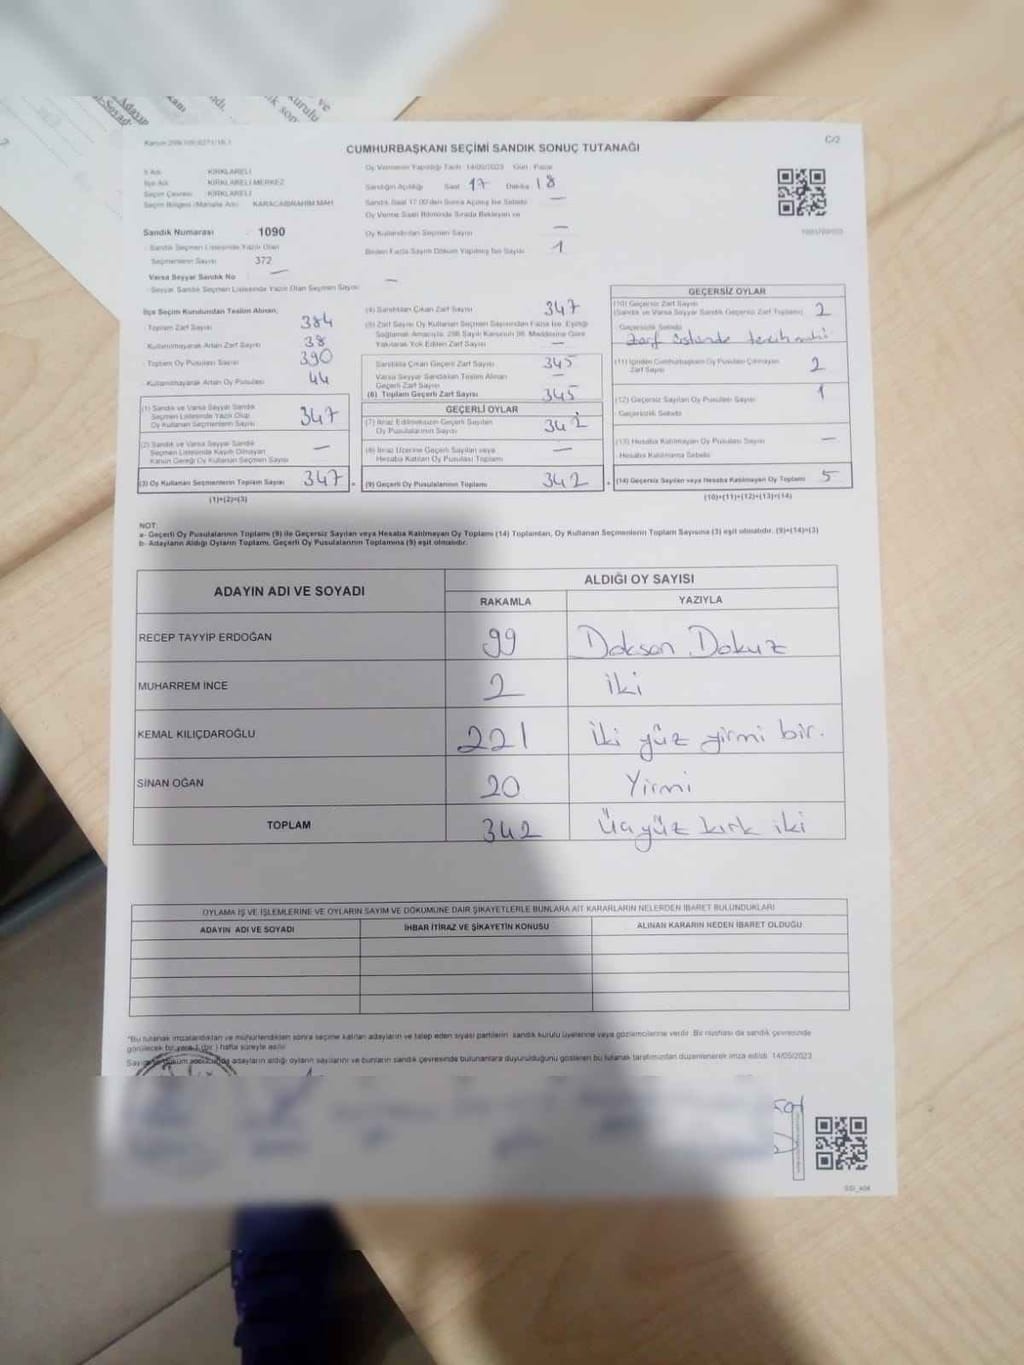 Adayın
ve Soyadı
ve
CUMHURBAŞKANI SEÇİMİ SANDIK SONUÇ TUTANAĞI
C/2
İl Adı : KIRKLARELİ
İlçe Adı : KIRKLARELİ MERKEZ
Seçim Çevresi : KIRKLARELİ
Seçim Bölgesi (Mahalle Adı) : KARACAİBRAHİM MAH
Sandık Numarası 1090
- Sandık Seçmen Listesinde Yazılı Olan
Seçmenlerin Sayısı 372
Varsa Seyyar Sandık No —
- Seyyar Sandık Seçmen Listesinde Yazılı Olan Seçmen Sayısı —
Oy Vermenin Yapıldığı Tarih : 14/05/2023 Gün : Pazar
Sandığın Açıldığı Saat 17 Dakika 18
Sandık Saat 17.00'den Sonra Açılmış İse Sebebi —
Oy Verme Saati Bitiminde Sırada Bekleyen ve
Oy Kullandırılan Seçmen Sayısı —
Birden Fazla Sayım Döküm Yapılmış İse Sayısı 1
İlçe Seçim Kurulundan Teslim Alınan;
- Toplam Zarf Sayısı 384
- Kullanılmayarak Artan Zarf Sayısı 38
- Toplam Oy Pusulası Sayısı 390
- Kullanılmayarak Artan Oy Pusulası 44
(1) Sandık ve Varsa Seyyar Sandık
Seçmen Listesinde Yazılı Olup
Oy Kullanan Seçmenlerin Sayısı 347
(2) Sandık ve Varsa Seyyar Sandık
Seçmen Listesinde Kayıtlı Olmayan
Kanun Gereği Oy Kullanan Seçmen Sayısı —
(3) Oy Kullanan Seçmenlerin Toplam Sayısı 347
(1)+(2)=(3)
(4) Sandıktan Çıkan Zarf Sayısı 347
(5) Zarf Sayısı Oy Kullanan Seçmen Sayısından Fazla İse, Eşitliği
Sağlamak Amacıyla, 298 Sayılı Kanunun 98. Maddesine Göre
Yakılarak Yok Edilen Zarf Sayısı —
Sandıkta Çıkan Geçerli Zarf Sayısı 345
Varsa Seyyar Sandıktan Teslim Alınan
Geçerli Zarf Sayısı —
(6) Toplam Geçerli Zarf Sayısı 345
GEÇERLİ OYLAR
(7) İtiraz Edilmeksizin Geçerli Sayılan
Oy Pusulalarının Sayısı 342
(8) İtiraz Üzerine Geçerli Sayılan veya
Hesaba Katılan Oy Pusulası Toplamı —
(9) Geçerli Oy Pusulalarının Toplamı 342
GEÇERSİZ OYLAR
(10) Geçersiz Zarf Sayısı
(Sandık ve Varsa Seyyar Sandık Geçersiz Zarf Toplamı) 2
- Geçersizlik Sebebi
Zarf üstünde tercih
(11) İçinden Cumhurbaşkanı Oy Pusulası Çıkmayan
Zarf Sayısı 2
(12) Geçersiz Sayılan Oy Pusulası Sayısı 1
- Geçersizlik Sebebi
(13) Hesaba Katılmayan Oy Pusulası Sayısı —
- Hesaba Katılmama Sebebi
(14) Geçersiz Sayılan veya Hesaba Katılmayan Oy Toplamı 5
(10)+(11)+(12)+(13)=(14)
NOT:
a- Geçerli Oy Pusulalarının Toplamı (9) ile Geçersiz Sayılan veya Hesaba Katılmayan Oy Toplamı (14) Toplamları, Oy Kullanan Seçmenlerin Toplam Sayısına (3) eşit olmalıdır. (9)+(14)=(3)
b- Adayların Aldığı Oyların Toplamı, Geçerli Oy Pusulalarının Toplamına (9) eşit olmalıdır.
ADAYIN ADI VE SOYADI
ALDIĞI OY SAYISI
RAKAMLA YAZIYLA
RECEP TAYYİP ERDOĞAN 99 Doksan Dokuz
MUHARREM İNCE 2 iki
KEMAL KILIÇDAROĞLU 221 iki yüz yirmi bir.
SİNAN OĞAN 20 Yirmi
TOPLAM 342 Üçyüz kırk iki
OYLAMA İŞ VE İŞLEMLERİNE VE OYLARIN SAYIM VE DÖKÜMÜNE DAİR ŞİKAYETLERLE BUNLARA AİT KARARLARIN NELERDEN İBARET BULUNDUKLARI
ADAYIN ADI VE SOYADI İHBAR İTİRAZ VE ŞİKAYETİN KONUSU ALINAN KARARIN NEDEN İBARET OLDUĞU
"Bu tutanak imzalandıktan ve mühürlendikten sonra seçime katılan adayların ve talep eden siyasi partilerin sandık kurulu üyelerine veya gözlemcilerine verilir. Bir nüshası da sandık çevresinde
görülecek bir yere 1 (bir) hafta süreyle asılır.
adayların aldığı oyların sayılarını ve bunların sandık çevresinde bulunanlara duyurulduğunu gösteren bu tutanak tarafımızdan düzenlenerek imza edildi. 14/05/2023